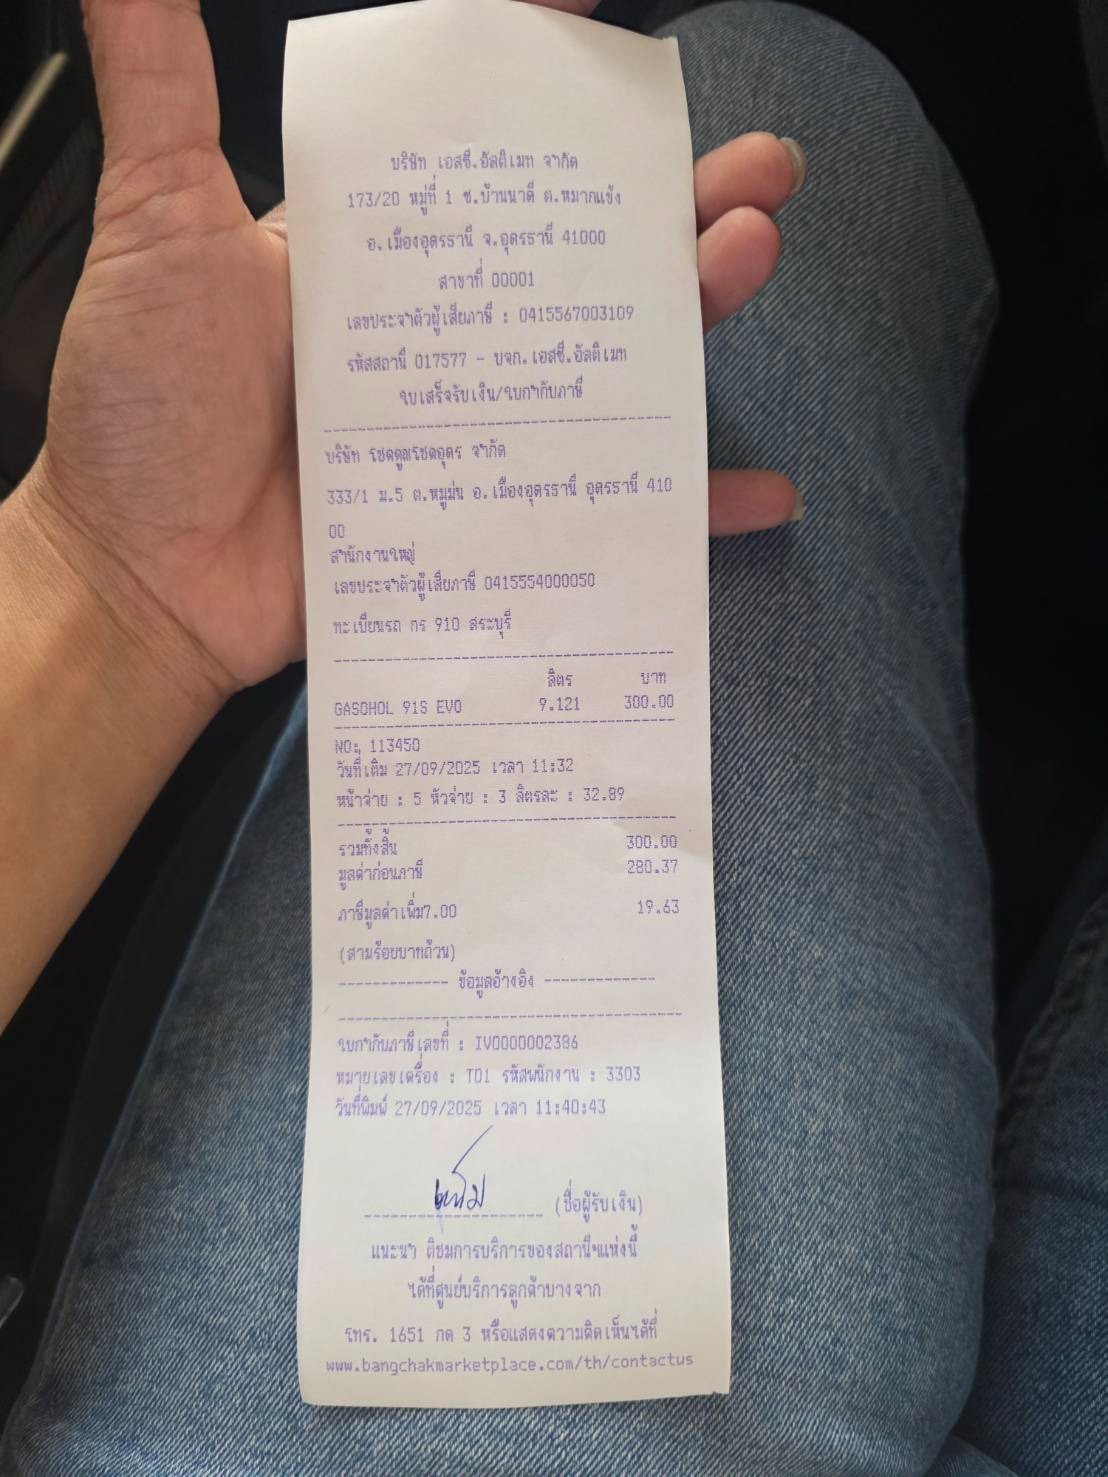 บริษัท เอสซี.อัลติเมท จำกัด
173/20 หมู่ที่ 1 ซ.บ้านนาดี ต.หมากแข้ง
อ.เมืองอุดรธานี จ.อุดรธานี 41000
สาขาที่ 00001
เลขประจำตัวผู้เสียภาษี : 0415567003109
รหัสสถานี 017577 - บจก.เอสซี.อัลติเมท
ใบเสร็จรับเงิน/ใบกำกับภาษี
บริษัท โชคคูณโชคอุดร จำกัด
333/1 ม.5 ต.หมูม่น อ.เมืองอุดรธานี อุดรธานี 410
00
สำนักงานใหญ่
เลขประจำตัวผู้เสียภาษี 0415554000050
ทะเบียนรถ กร 910 สระบุรี
ลิตร บาท
GASOHOL 91S EVO 9.121 300.00
NO: 113450
วันที่เติม 27/09/2025 เวลา 11:32
หน้าจ่าย : 5 หัวจ่าย : 3 ลิตรละ : 32.89
รวมทั้งสิ้น 300.00
มูลค่าก่อนภาษี 280.37
ภาษีมูลค่าเพิ่ม7.00 19.63
(สามร้อยบาทถ้วน)
------------- ข้อมูลอ้างอิง -------------
ใบกำกับภาษีเลขที่ : IV0000002386
หมายเลขเครื่อง : T01 รหัสพนักงาน : 3303
วันที่พิมพ์ 27/09/2025 เวลา 11:40:43
(ชื่อผู้รับเงิน)
แนะนำ ติชมการบริการของสถานีฯแห่งนี้
ได้ที่ศูนย์บริการลูกค้าบางจาก
โทร. 1651 กด 3 หรือแสดงความคิดเห็นได้ที่
www.bangchakmarketplace.com/th/contactus